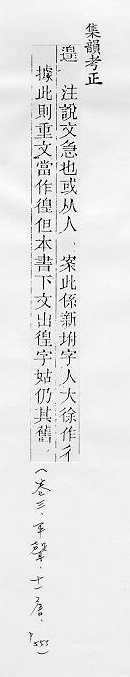 集韻考正
遑 注說文急也或从人、案此係新坿字人大徐作彳
據此則重文當作徨但本書下文出徨字姑仍其舊.
(卷三.平聲.十一唐.P555)